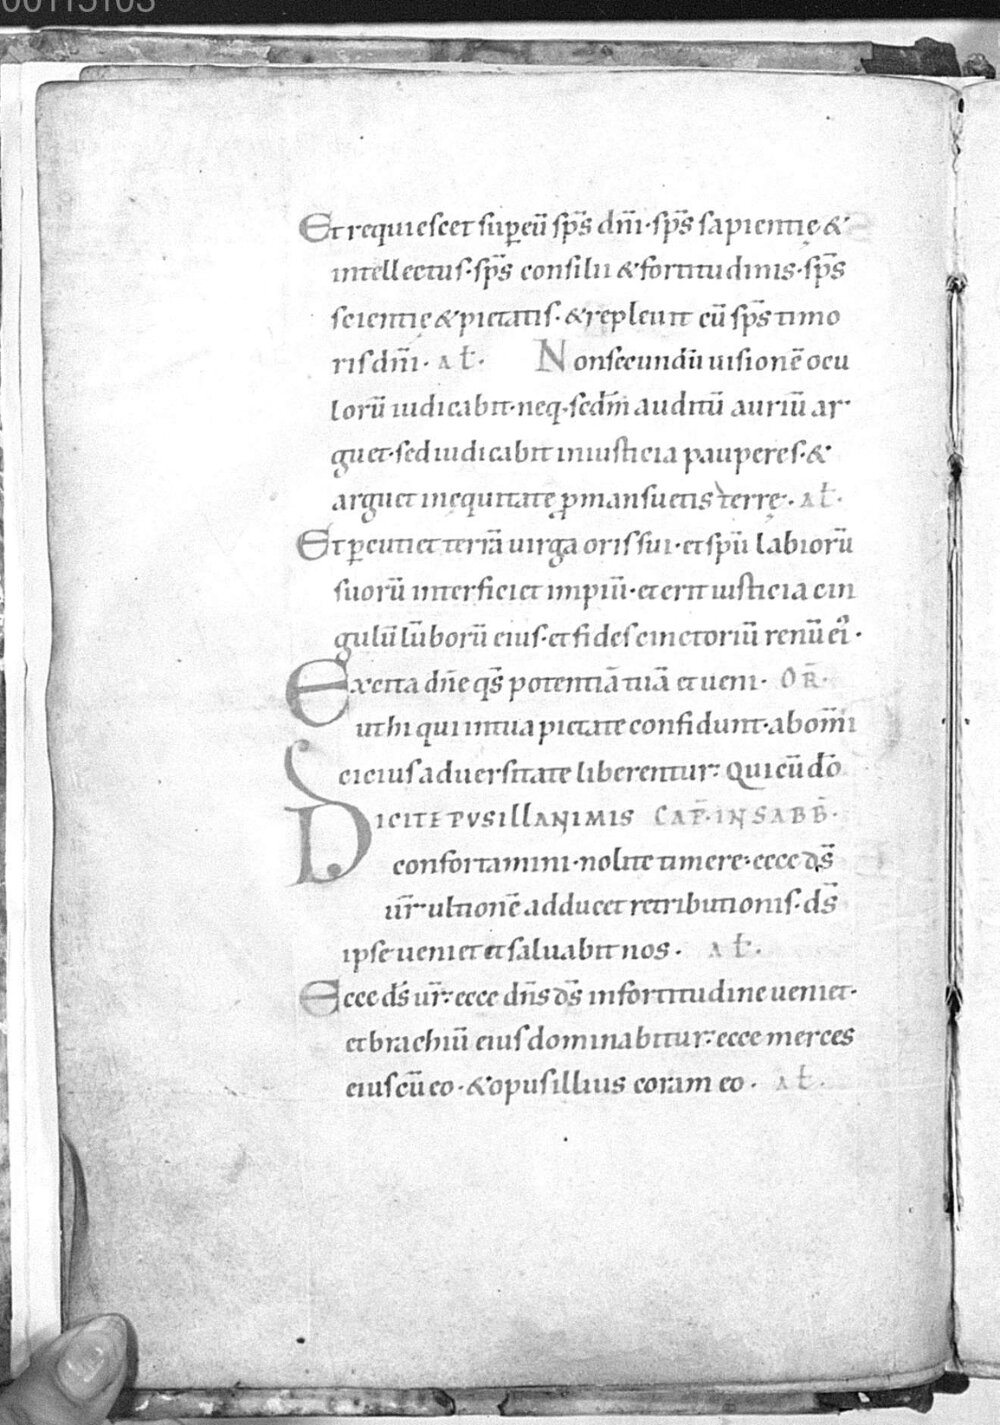 00113103
Et requiescet sup eū sp̄s dn̄i · sp̄s sapientię &
intellectus · sp̄s consilii & fortitudinis · sp̄s
scientię & pietatis · & repleuit eū sp̄s timo
ris dn̄i · aƚ · Non secundū uisionē ocu
lorū iudicabit · neq · scd̄m auditū auriū ar
guet · sed iudicabit in iusticia pauperes · &
arguet in ęquitate ꝓ mansuetis terrę · aƚ ·
Et ꝑcutiet terrā uirga oris sui · et spū labiorū
suorū interficiet impiū · et erit iusticia cin
gulū lūborū eius · et fides cinctoriū renū ei᾽ ·
Excita dn̄e qs̄ potentiā tuā et ueni · OR̄ ·
ut hi qui in tua pietate confidunt · ab om̄i
cicius aduersitate liberentur : Qui cū dō
DICITE PVSILLANIMIS CAP̄ · IN SABB̄ ·
confortamini · nolite timere : ecce ds̄
ur̄ ultionē adducet retributionis · ds̄
ipse ueniet et saluabit nos · aƚ ·
Ecce ds̄ ur̄ : ecce dn̄s ds̄ in fortitudine ueniet ·
et brachiū eius dominabitur : ecce merces
eius cū eo · & opus illius coram eo · aƚ ·